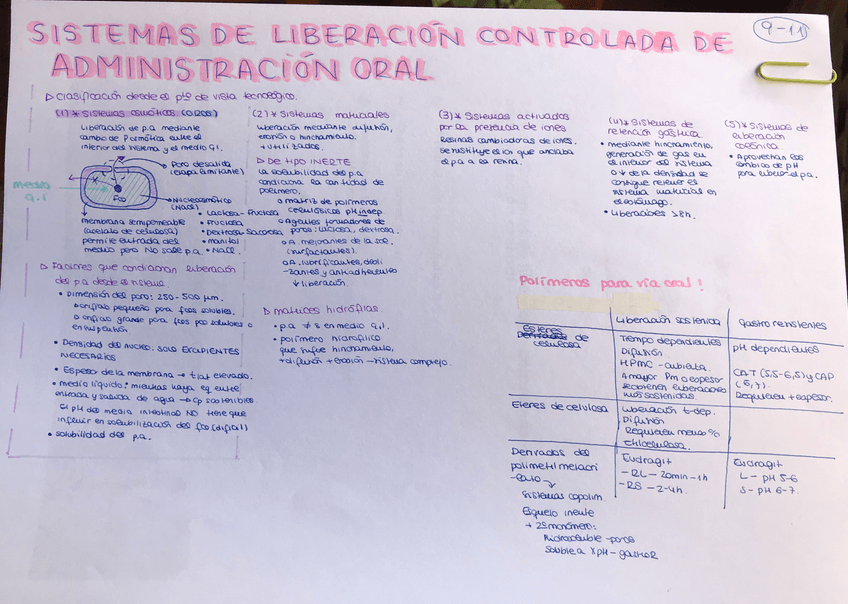 9-11
SISTEMAS DE LIBERACIÓN CONTROLADA DE
ADMINISTRACIÓN ORAL
▷ Clasificación desde el pto de vista tecnológico.
(1) * Sistemas osmóticos (OROS)
Liberación de p.a mediante
cambio de P osmótica entre el
interior del sistema y el medio g.i.
Poro de salida
(etapa limitante)
medio
g.i
Fco
Núcleo osmótico
(NaCl)
membrana semipermeable
(acetato de celulosa)
permite entrada del
medio pero NO sale p.a
• Lactosa-Fructosa
• Fructosa
• Dextrosa-Sacarosa
• manitol
• NaCl.
▷ Factores que condicionan liberación
del p.a desde el sistema.
• Dimensión del poro: 250-500 µm.
orificio pequeño para fcos solubles.
orificio grande para fcos poco solubles o
en suspensión
• Densidad del núcleo: SOLO EXCIPIENTES
NECESARIOS
• Espesor de la membrana → t lat elevado.
• medio líquido: mientras haya eq entre
entrada y salida de agua → Cp sostenibles.
El pH del medio intestinal NO tiene que
influir en solubilización del fco (difícil)
• solubilidad del p.a.
(2) * Sistemas matriciales
Liberación mediante difusión,
erosión o hinchamiento.
+ utilizados.
▷ DE TIPO INERTE
La solubilidad del p.a
condiciona la cantidad de
polímero.
o matriz de polímeros
celulósicos pH indep
o Agentes formadores de
poros: lactosa, dextrosa.
o A. mejorantes de la sol.
(surfactantes).
o A. lubrificantes, desli-
zantes y antiadherentes
↓ liberación
▷ matrices hidrófilas.
• p.a ≠ S en medio g.i.
• polímero hidrofílico
que sufre hinchamiento,
+ difusión + erosión → sistema complejo.
(3) * Sistemas activados
por la presencia de iones
Resinas cambiadoras de iones.
Se sustituye el ion que anclaba
el p.a a la resina.
(4) * Sistemas de
retención gástrica
• mediante hinchamiento,
generación de gas en
el interior del sistema
o ↓ de la densidad se
consigue retener el
sistema matricial en
el estómago.
• Liberaciones > 8h.
(5) * Sistemas de
liberación
colónica
• Aprovechan los
cambios de pH
para liberar el p.a.
Polímeros para vía oral!
Liberación sostenida
gastro resistentes
Esteres de
celulosa
Tiempo dependientes
Difusión
HPMC - cubierta.
A mayor Pm o espesor
se obtienen liberaciones
más sostenidas.
pH dependientes
CAT (5,5-6,5) y CAP
Requieren + espesor.
Eteres de celulosa
Liberación t-dep.
Difusión
Requieren menos %
Etilcelulosa.
Derivados del
polimetilmetacri
-lato
Sistemas copolim.
Esquelo inerte
+ 2S monómero:
Hidrosoluble - poros
Soluble a XpH - gastroR
Eudragit
- RL - 20min - 1h
- RS - 2-4h.
Eudragit
L - pH 5-6
S - pH 6-7.